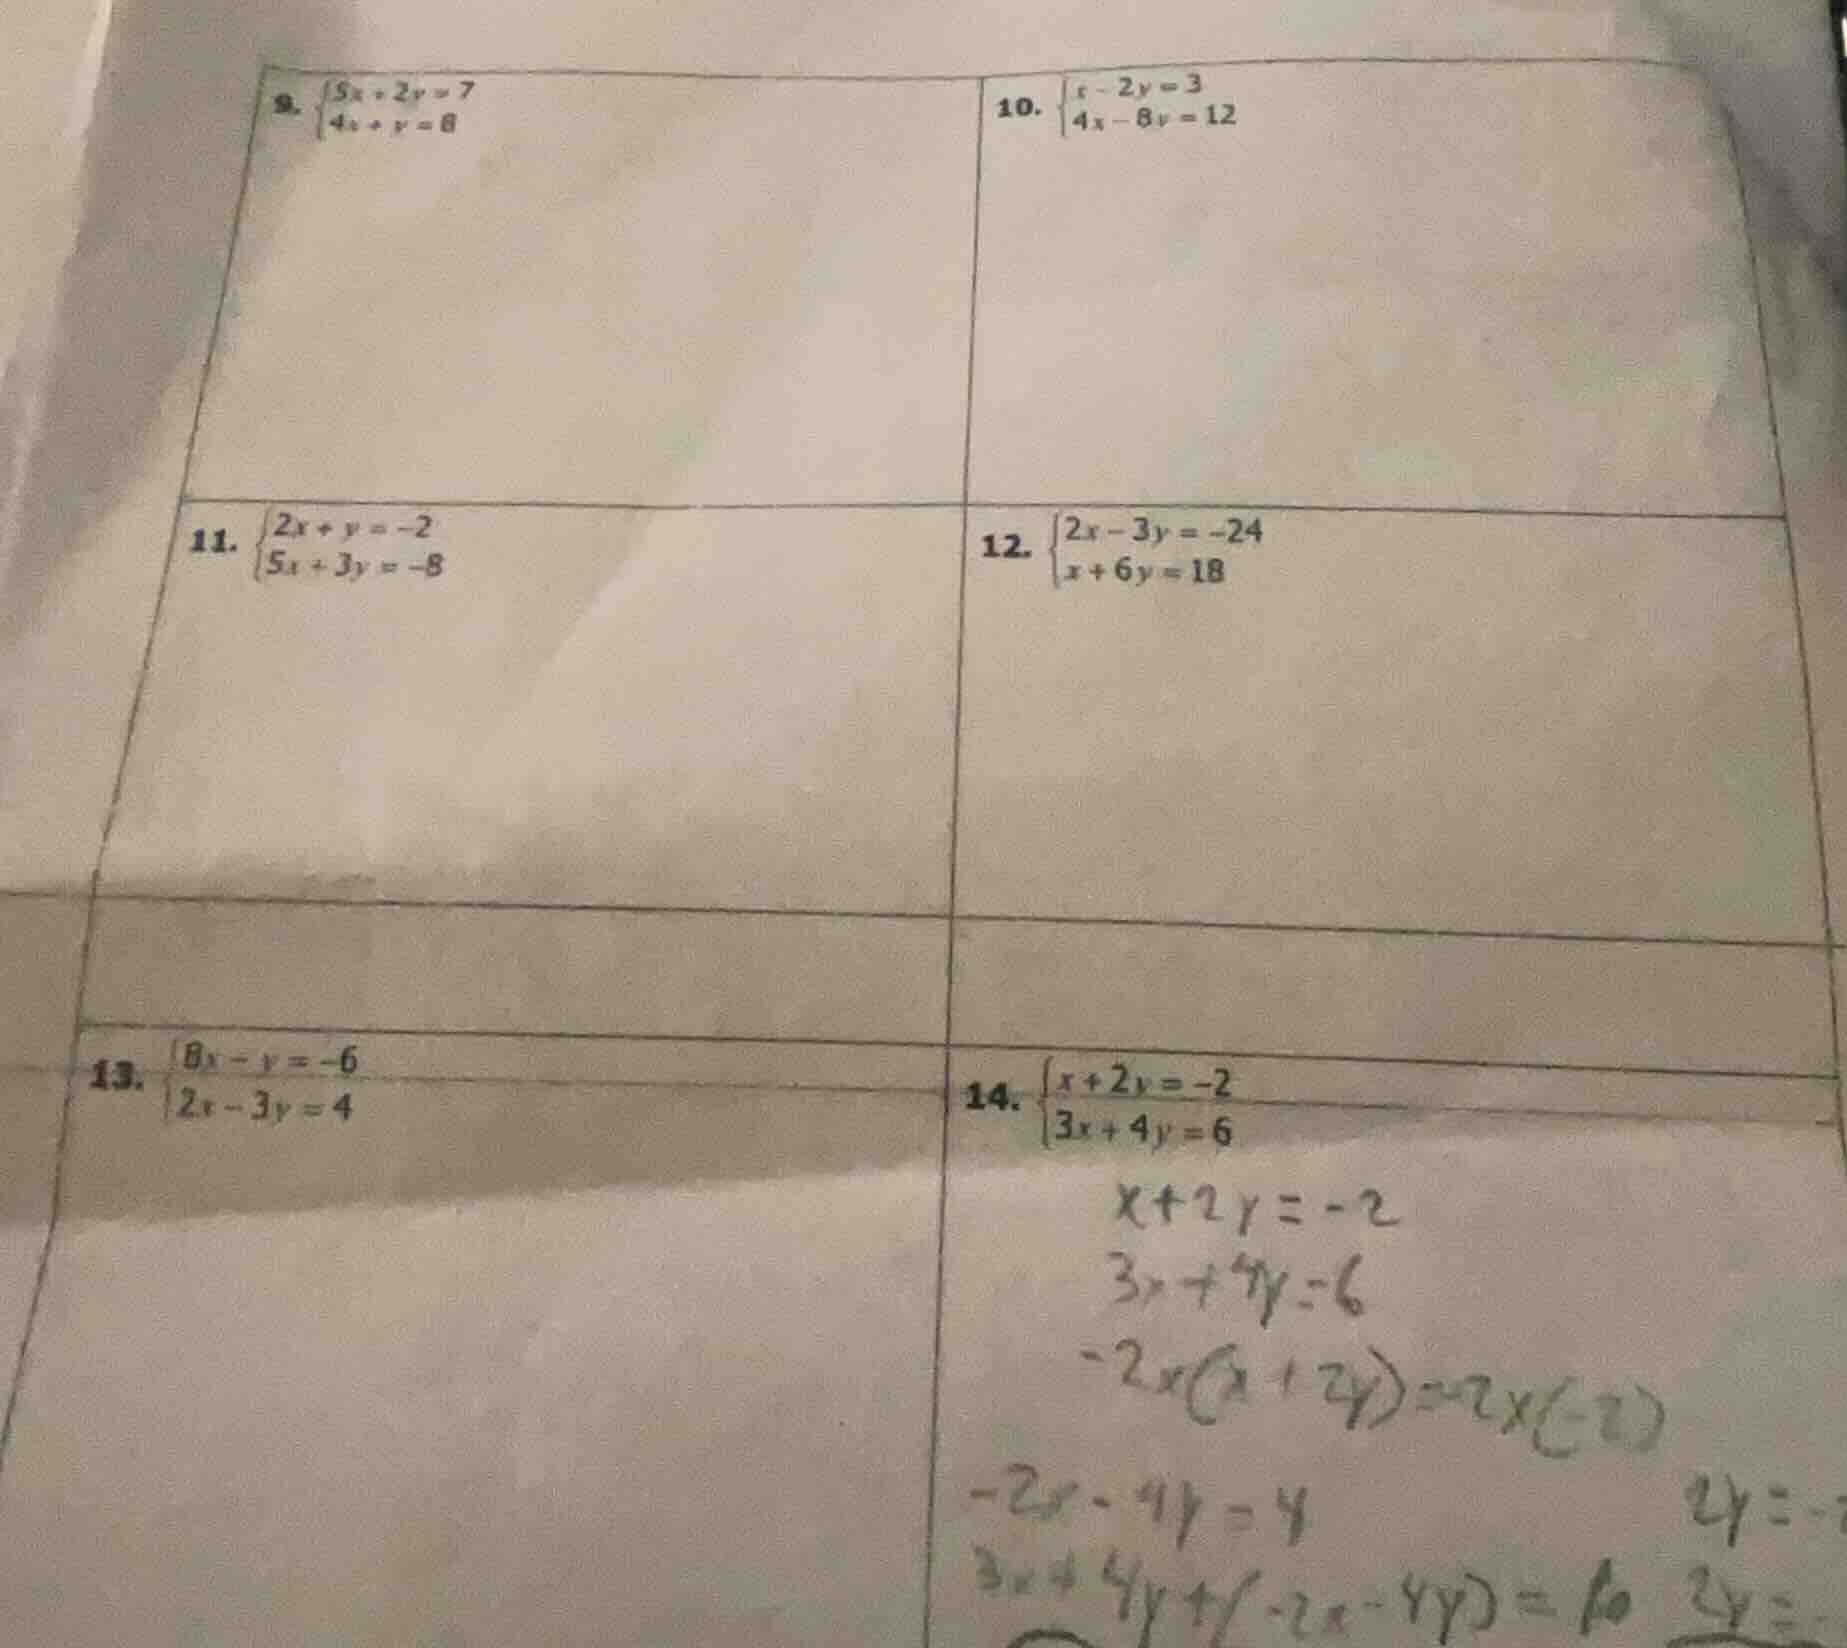 9. 5x + 2y = 7
4x + y = 8
10. x - 2y = 3
4x - 8y = 12
11. 2x + y = -2
5x + 3y = -8
12. 2x - 3y = -24
x + 6y = 18
13. 8x - y = -6
2x - 3y = 4
14. x + 2y = -2
3x + 4y = 6
x + 2y = -2
3x + 4y = 6
-2x(x + 2y) = -2x(-2)
-2x - 4y = 4
2y = -
3x + 4y + (-2x - 4y) =
2y = -